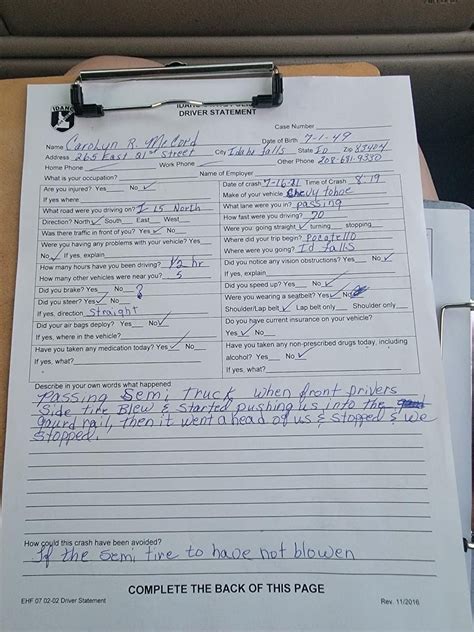 IDAHO
IDAHO STATE POLICE
DRIVER STATEMENT
Case Number
Name Carolyn R. McCord Date of Birth 7-1-49
Address 265 East 21st Street City Idaho falls State ID Zip 83404
Home Phone Work Phone Other Phone 208-681-9330
What is your occupation? Name of Employer
Are you injured? Yes No ✓ Date of crash 7-16-21 Time of Crash 8:19
If yes where Make of your vehicle Chevy tahoe
What road were you driving on? I 15 North What lane were you in? passing
Direction? North ✓ South East West How fast were you driving? 70
Was there traffic in front of you? Yes ✓ No Were you going straight ✓ turning stopping
Were you having any problems with your vehicle? Yes Where did your trip begin? Pocatello
No ✓ If yes, explain Where were you going? Id falls
How many hours have you been driving? 1/2 hr Did you notice any vision obstructions? Yes No ✓
How many other vehicles were near you? 5 If yes, explain
Did you brake? Yes No ? Did you speed up? Yes No ✓
Did you steer? Yes ✓ No Were you wearing a seatbelt? Yes ✓ No
If yes, direction straight Shoulder/Lap belt ✓ Lap belt only Shoulder only
Did your air bags deploy? Yes No ✓ Do you have current insurance on your vehicle?
If yes, where in the vehicle? Yes ✓ No
Have you taken any medication today? Yes ✓ No Have you taken any non-prescribed drugs today, including
If yes, what? alcohol? Yes No ✓ If yes, what?
Describe in your own words what happened
Passing Semi Truck when front drivers
Side tire Blew & Started pushing us into the
gaurd rail, then it went ahead of us & Stopped & we
Stopped.
How could this crash have been avoided?
If the Semi tire to have not blowen
COMPLETE THE BACK OF THIS PAGE
EHF 07 02-02 Driver Statement Rev. 11/2016